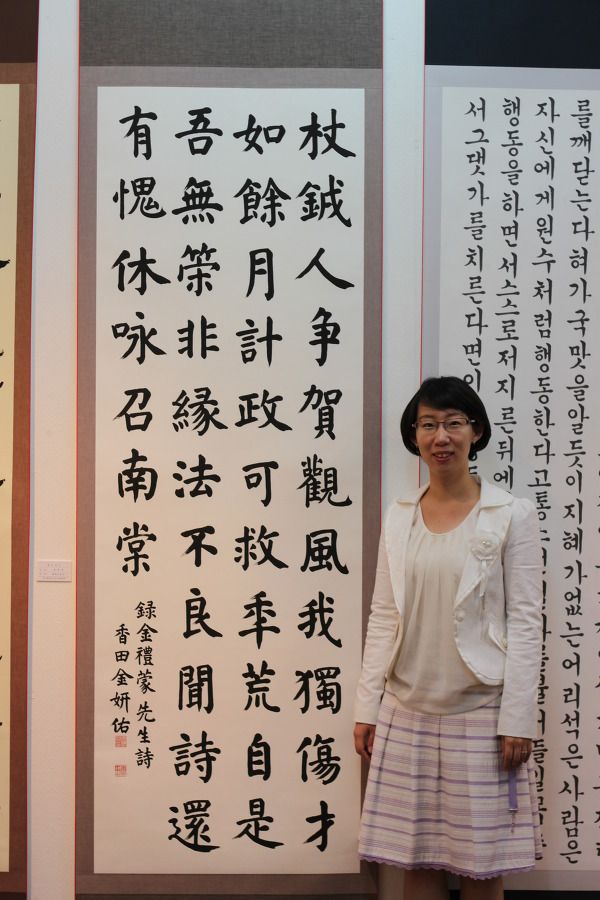 를깨닫는다혀가국맛을알듯이지혜가없는어리석은사람은
자신에게원수처럼행동한다고통
행동을하면서스스로저지른뒤에
서그댓가를치른다면
杖鉞人争賀觀風我獨傷才
如餘月計政可救秊荒自是
吾無筞非縁法不良聞詩還
有愧休咏召南棠
録金禮蒙先生詩
香田金妍佑